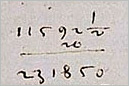 11592 1/2
20
231850